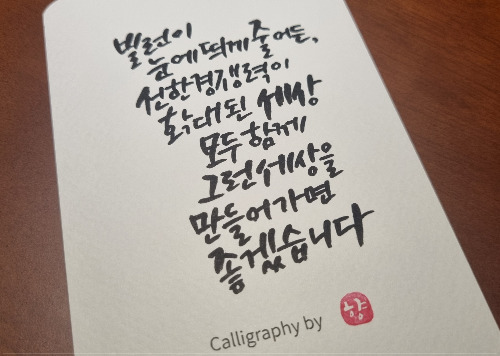 빌런이
눈에 띄게 줄어든,
선한경쟁력이
확대된 세상
모두 함께
그런세상을
만들어가면
좋겠습니다
Calligraphy by 향